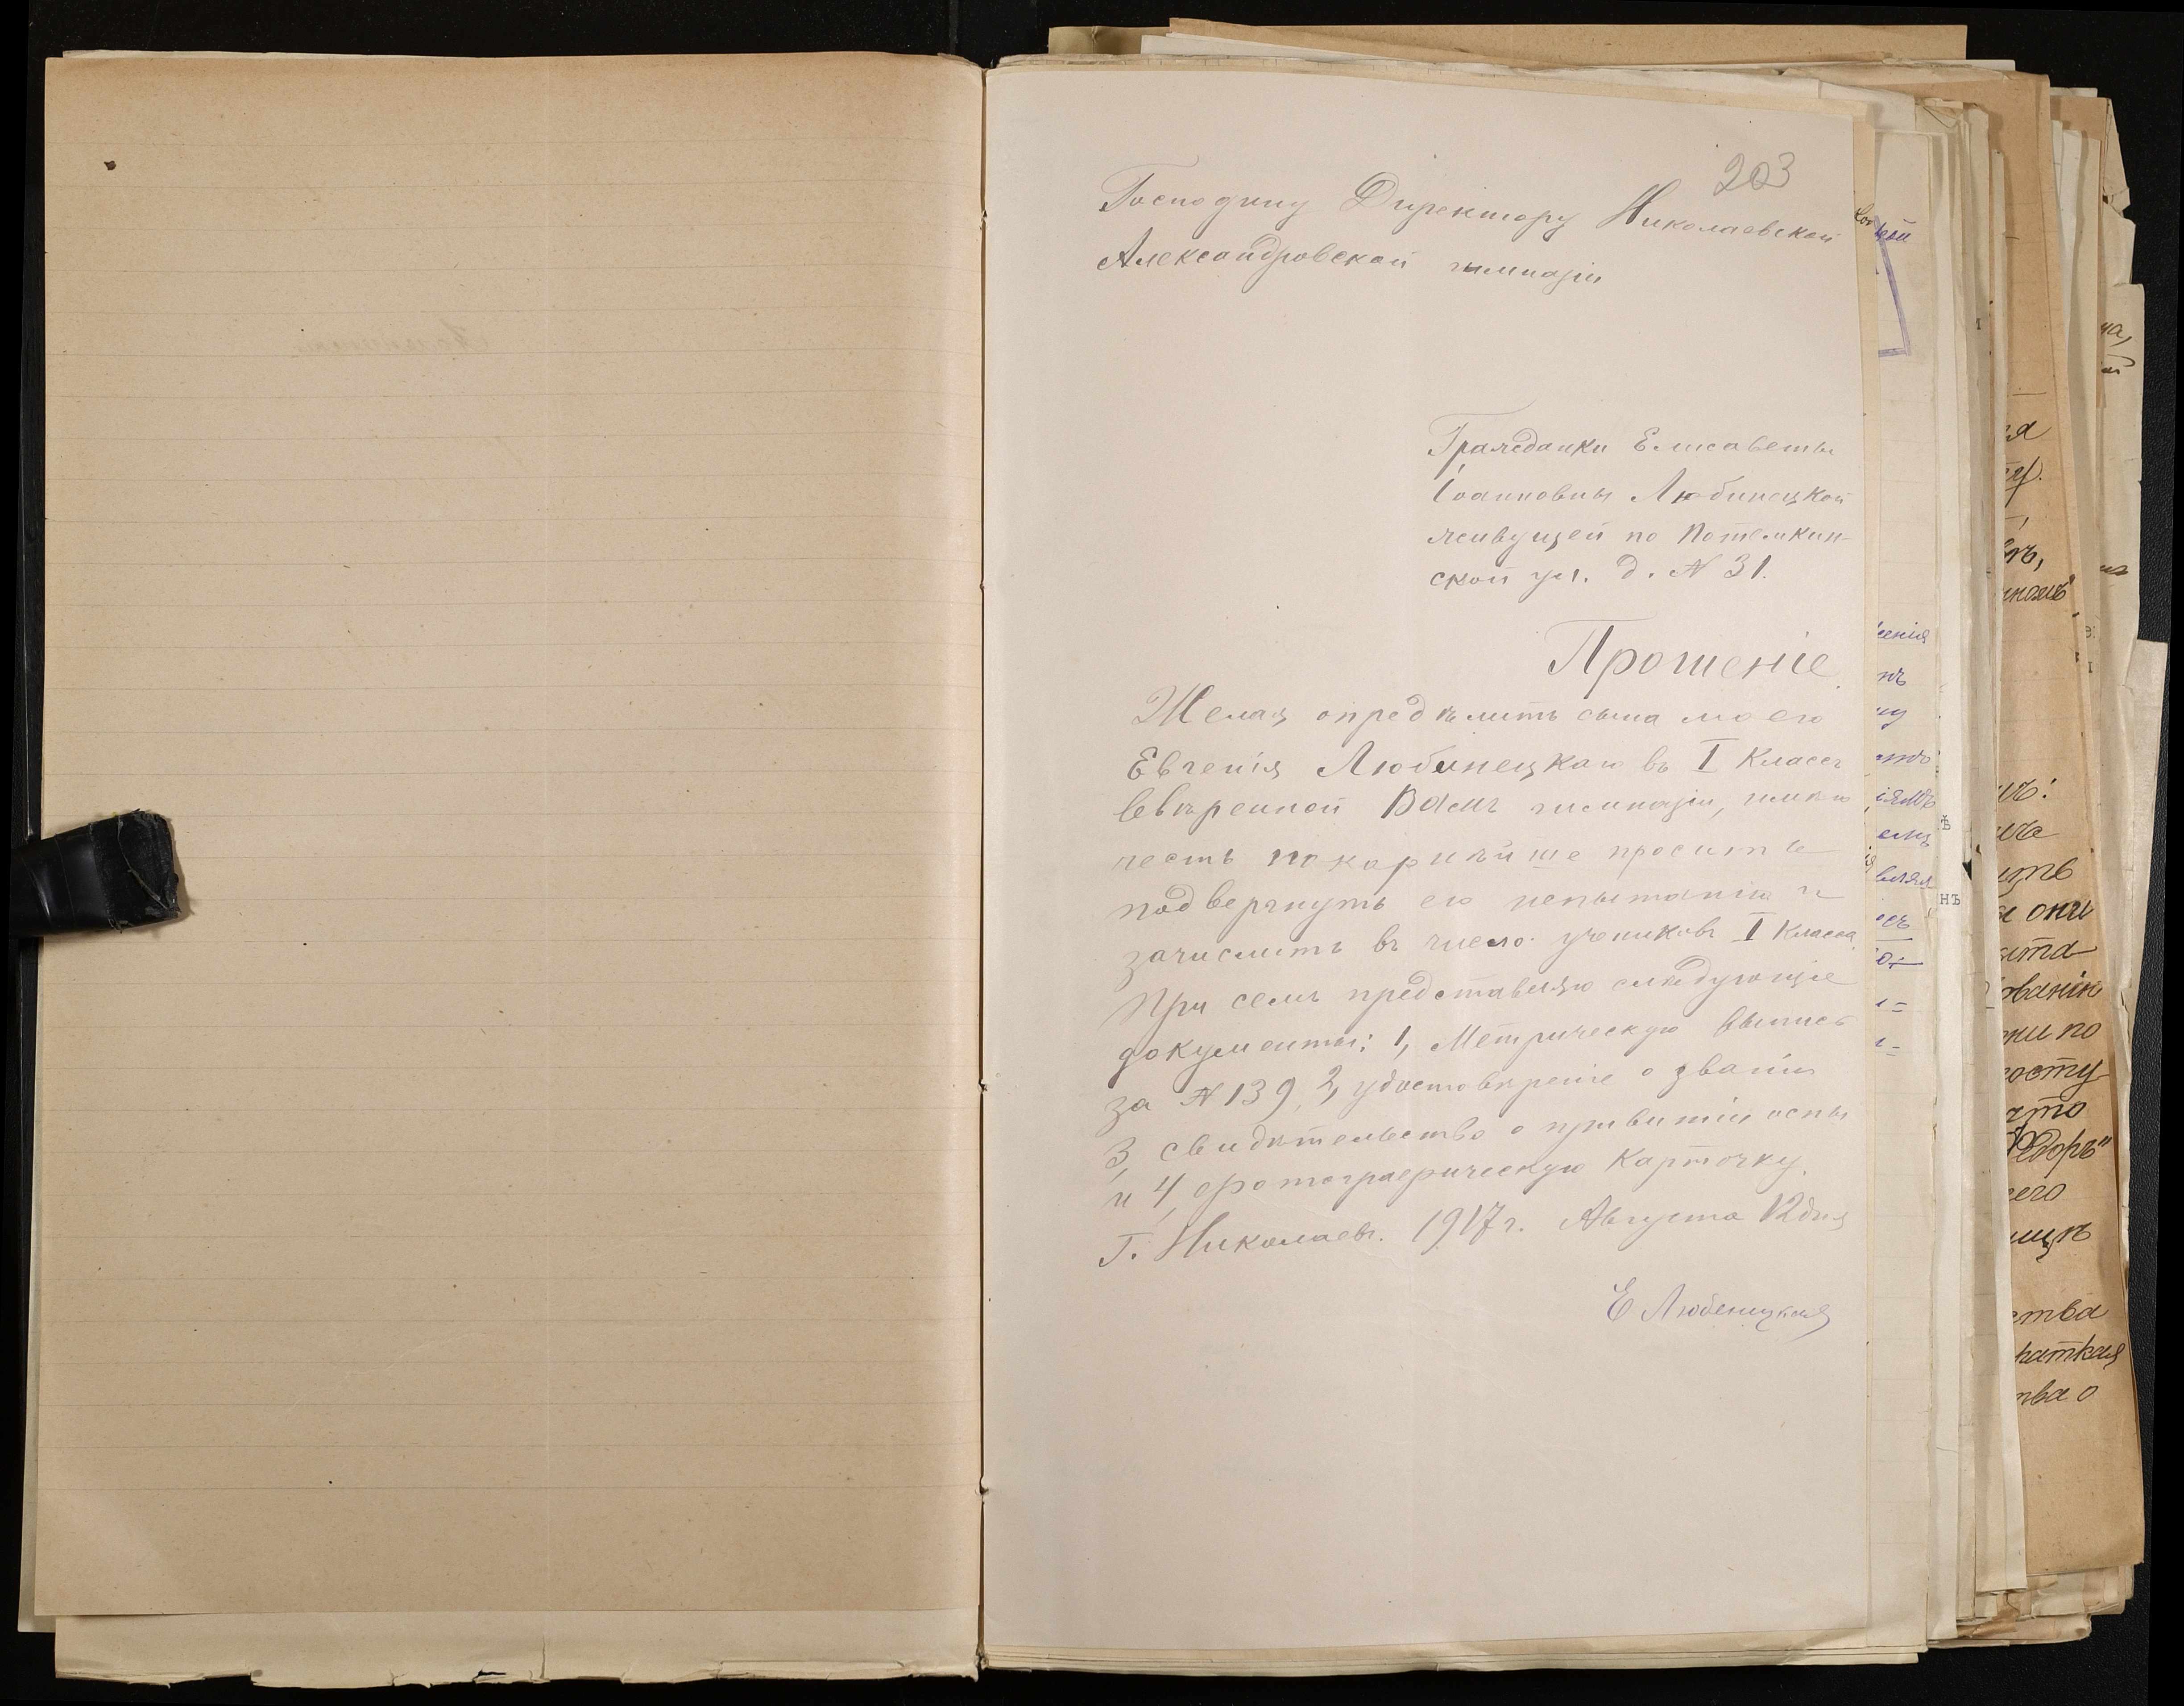 203
Господину Директору Николаевской
Александровской гимназіи
Гражданки Елисаветы
Іоанновны Любинецкой
живущей по Потемкин-
ской ул. д. № 31.
Прошеніе.
Желая опредѣлить сына моего
Евгенія Любинецкаго въ I Классъ
ввѣренной Вамъ гимназіи, имѣю
честь покорнѣйше просить
подвергнуть его испытанію и
зачислить въ число учениковъ I Класса.
При семъ представляю слѣдующіе
документы: 1, Метрическую выпись
за № 139, 2, удостовѣреніе о званіи
3, свидѣтельство о привитіи оспы
и 4, фотографическую Карточку.
Г. Николаевъ. 1917 г. Августа 12 дня
Е Любенецкая